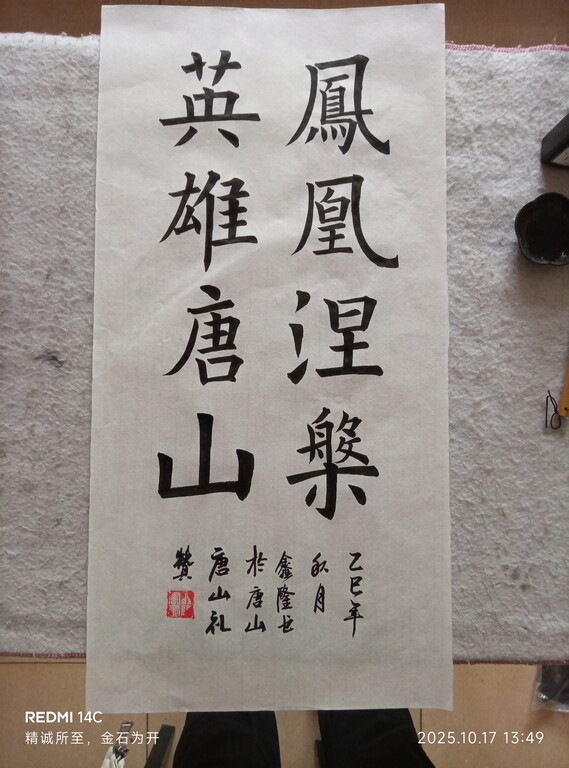 鳳凰涅槃
英雄唐山
乙巳年
秋月
鑫隆书
於唐山
唐山礼
赞
REDMI 14C
精诚所至，金石为开
2025.10.17 13:49